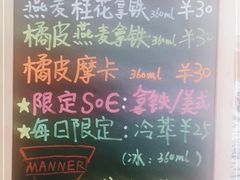 燕麦桂花拿铁 360ml ¥30
橘皮燕麦拿铁 360ml ¥30
橘皮摩卡 360ml ¥30
★限定SOE:拿铁/美式
★每日限定:冷萃¥25
MANNER (冰:360ml)